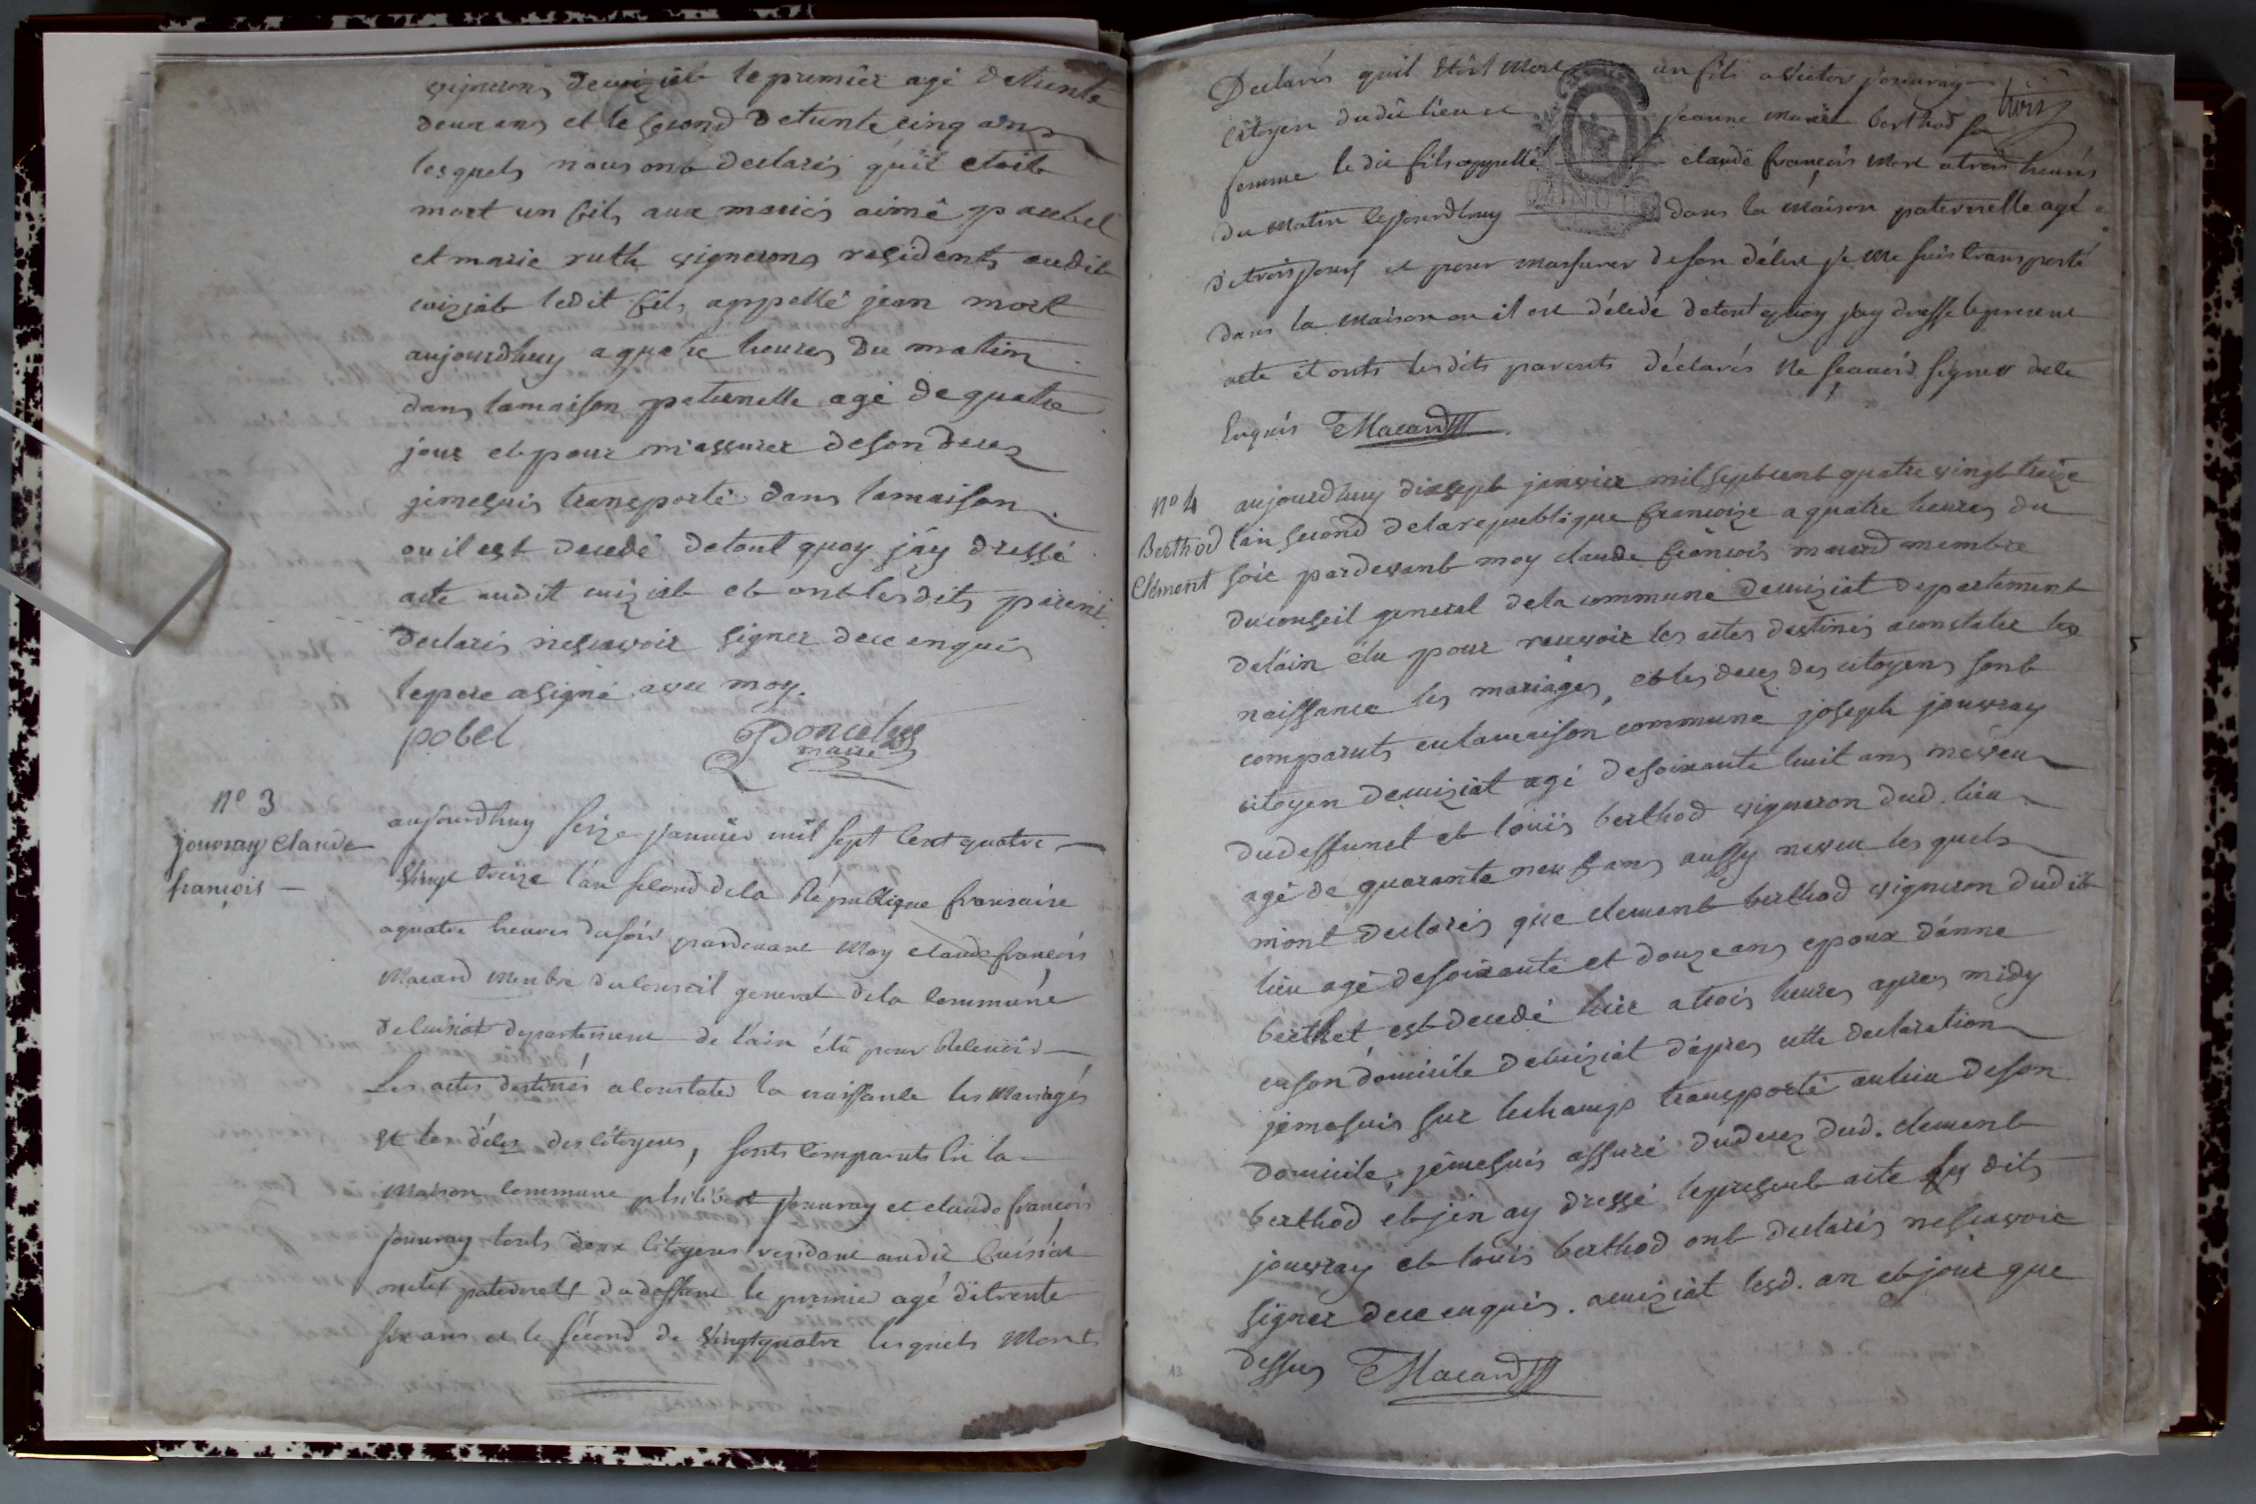 vigneron de cuiziat le premier agé de trente
deux ans et le second de trente cinq ans
lesquels nous ont declarés qu'il etoit
mort un fils aux mariés aimé paubel
et marie ruth vignerons residents audit
cuiziat ledit fils appellé jean mort
aujourdhuy a quatre heures du matin
dans la maison paternelle agé de quatre
jour et pour m'assurer de son deces
je me suis transporté dans la maison
ou il est decedé de tout quoy j'ay dressé
acte audit cuiziat et ont lesdits parents
declarés ne scavoir signer de ce enquis
le pere a signé avec moy.
pobel Poncelus
maire
n° 3
jouvray Claude
françois
aujourdhuy seize janvier mil sept cent quatre
vingt treize l'an second de la République fransaise
a quatre heures du soir pardevant moy claude françois
Macard membre du conseil general de la commune
de Cuiziat departement de l'ain élu pour Recevoir
Les actes destinés a constater la naissance les mariages
et les déces des citoyens, sonts comparuts en la
maison commune philibert jouvray et claude françois
jouvray touts deux citoyens residant audit Cuiziat
oncles paternels du deffunt le premier agé de trente
six ans et le second de vingt quatre lesquels m'ont
Declarés quil étoit mort un fils a victor jouvray
trois
citoyen dudit lieu et jeanne marie berthod sa
femme ledit fils appellé claude françois mort a trois heures
du matin cejourdhuy dans la maison paternelle agé
MINUTE
de trois jours et pour m'assurer de son décès je me suis transporté
dans la maison ou il est décédé de tout quoy j'ay dressé le present
acte et onts lesdits parents déclarés ne scavoir signer de ce
Enquis Macard
n° 4
Berthod
Clément
aujourdhuy dixsept janvier mil sept cent quatre vingt treize
l'an second de la republique francoise a quatre heures du
soir pardevant moy claude françois macard membre
du conseil general de la commune de cuiziat departement
de l'ain élu pour recevoir les actes destinés a constater les
naissance les mariages, et les deces des citoyens sont
comparuts en la maison commune joseph jouvray
citoyen de cuiziat agé de soixante huit ans neveu
du deffunct et louis berthod vigneron dud. lieu
agé de quarante neuf ans aussy neveu lesquels
m'ont declarés que clement berthod vigneron dudit
lieu agé de soixante et douze ans epoux d'anne
berthet est decedé hier a trois heures apres midy
en son domicile de cuiziat d'apres cette declaration
je me suis sur le champ transporté au lieu de son
domicile, je me suis assuré du deces dud. clement
berthod et j'en ay dressé le present acte les dits
jouvray et louis berthod ont declarés ne scavoir
signer de ce enquis. a cuiziat lesd. an et jour que
dessus Macard
13